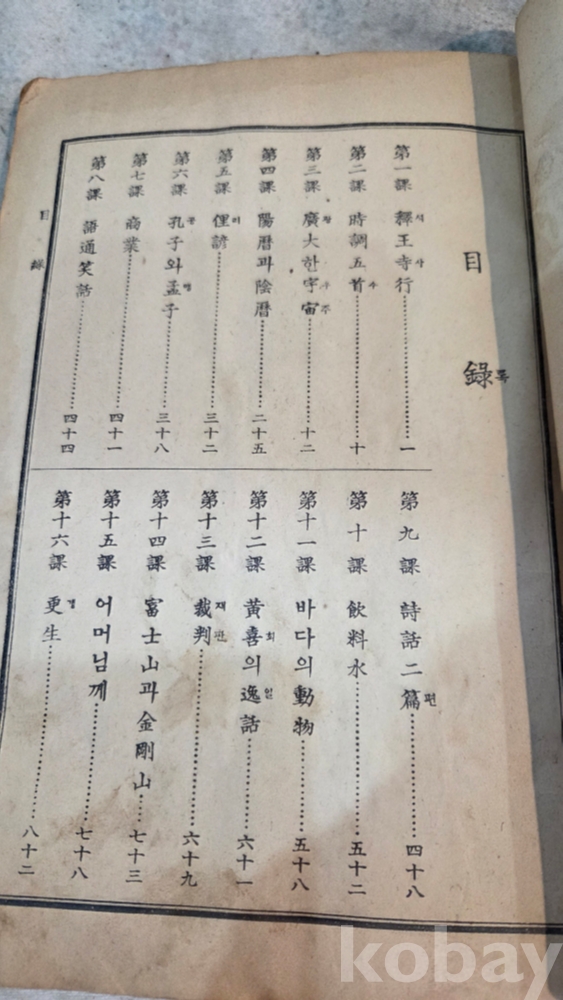 目錄록
第一課 釋석王寺사行……一
第二課 時調五首수……十
第三課 廣광大한宇우宙주……十二
第四課 陽曆과陰曆……二十五
第五課 俚리諺……三十二
第六課 孔공子와孟맹子……三十八
第七課 商業……四十一
第八課 語通笑話……四十四
第九課 詩話二篇편……四十八
第十課 飮料水……五十二
第十一課 바다의動物……五十八
第十二課 黃喜희의逸일話……六十一
第十三課 裁재判판……六十九
第十四課 富士山과金剛山……七十三
第十五課 어머님께……七十八
第十六課 更갱生……八十二
目錄
kobay